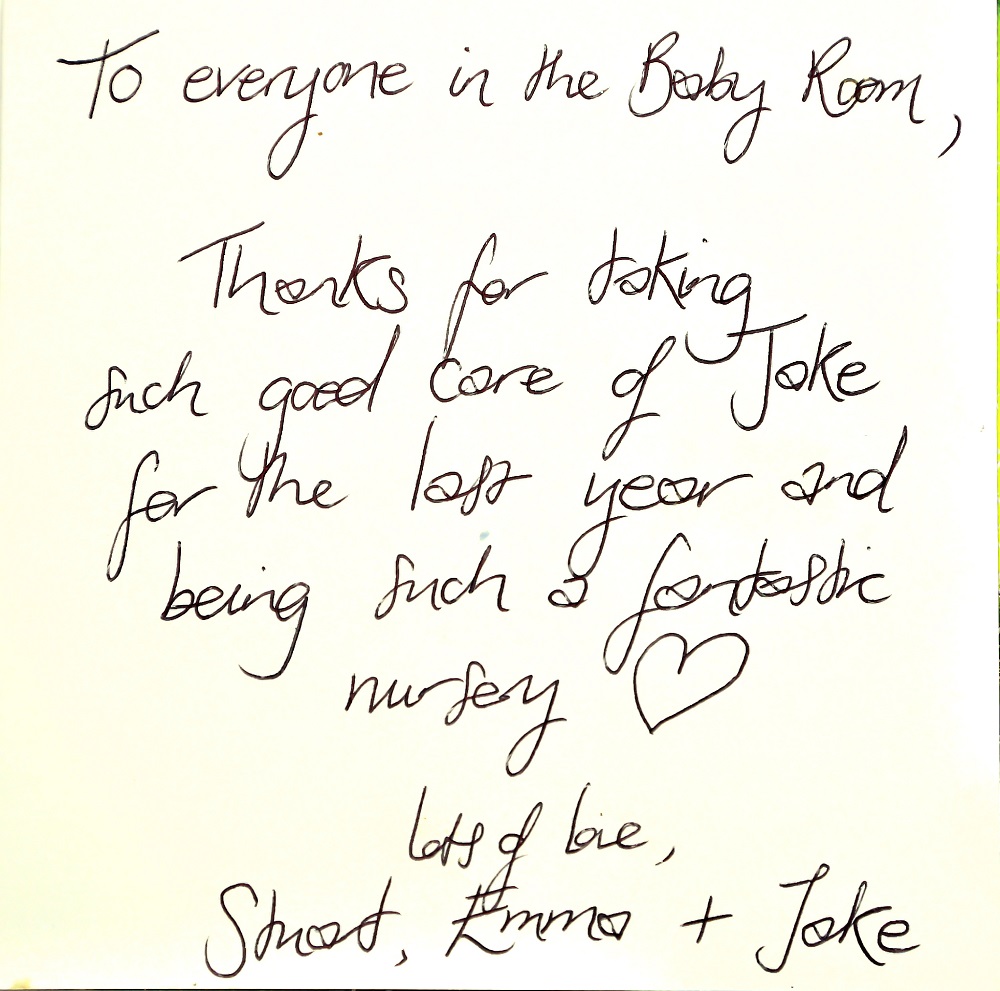 To everyone in the Baby Room,
Thanks for taking
such good care of Jake
for the last year and
being such a fantastic
nursery ♡
lots of love,
Stuart, Emma + Jake